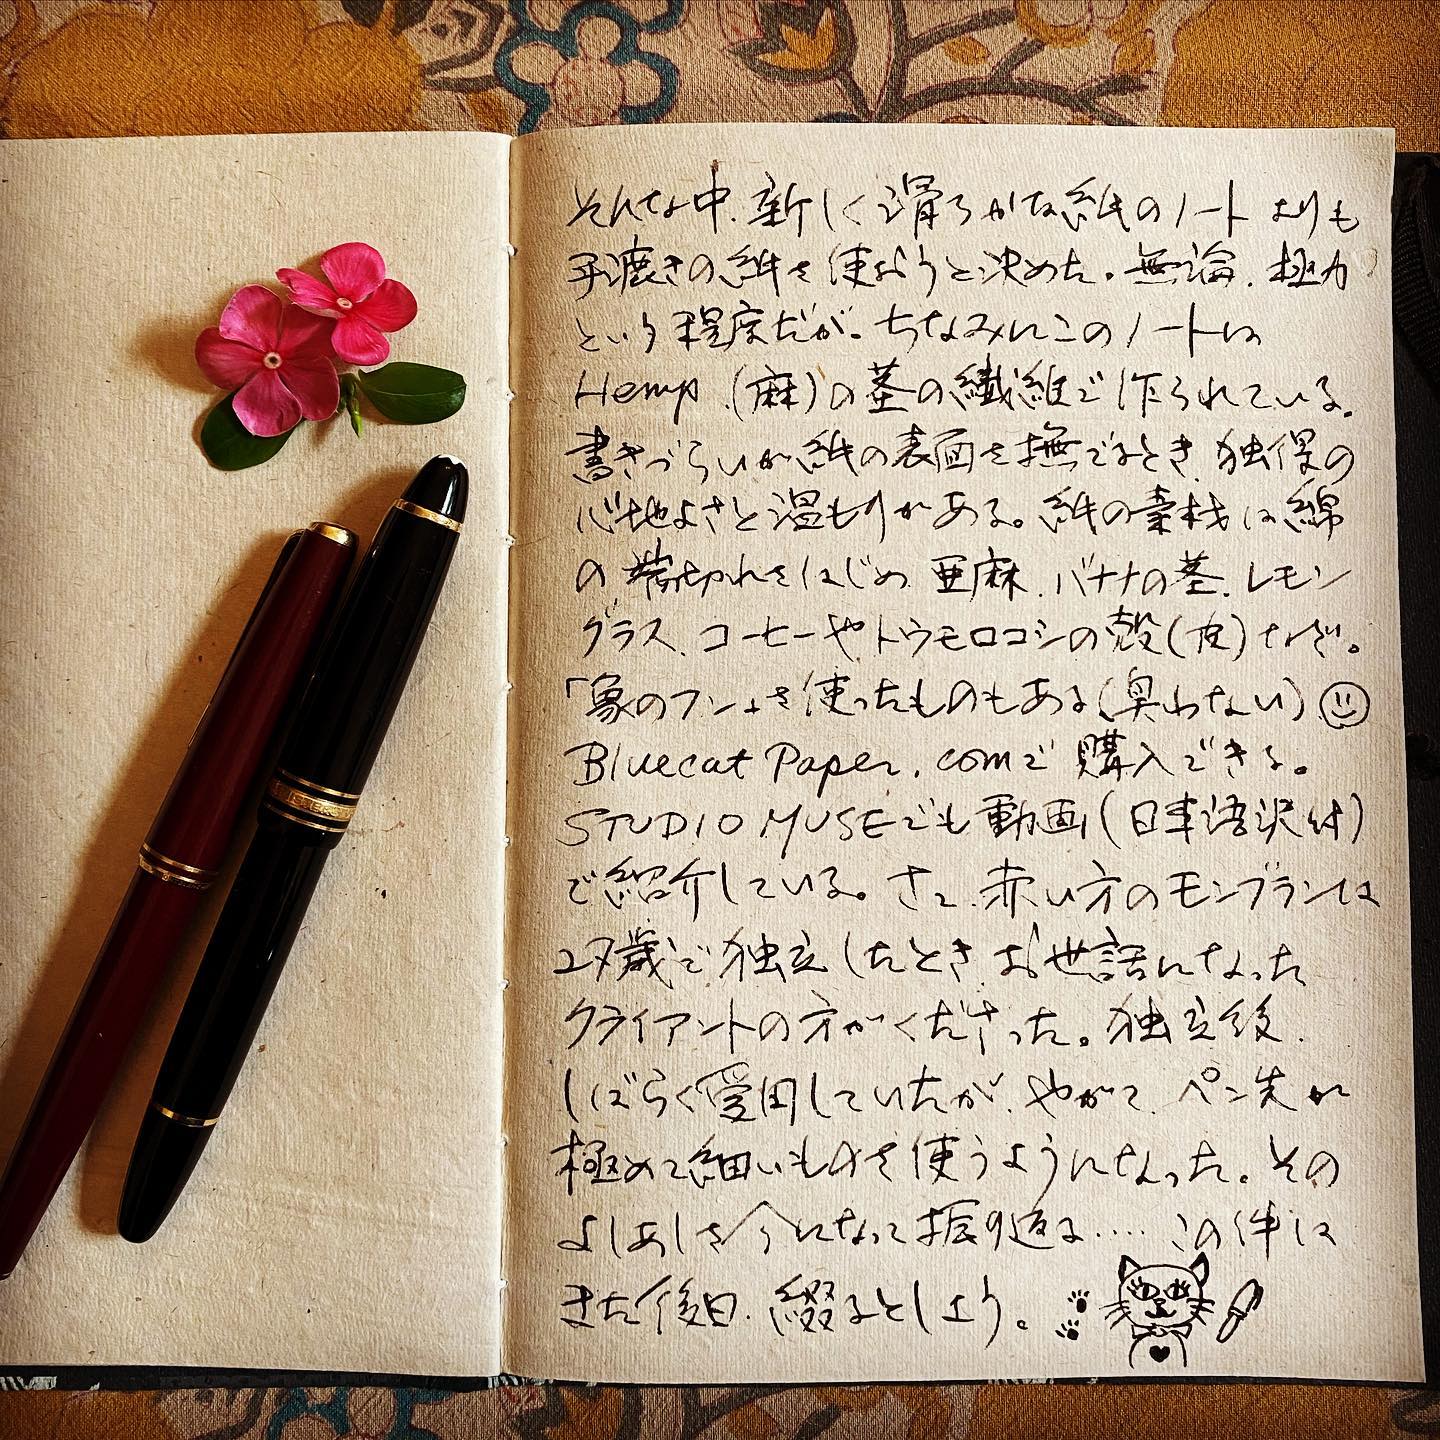 そんな中、新しく滑らかな紙のノートよりも
手漉きの紙を使おうと決めた。無論、極力
という程度だが。ちなみにこのノートは
Hemp (麻)の茎の繊維で作られている。
書きづらいが紙の表面を撫でるとき、独得の
心地よさと温もりがある。紙の素材は綿
の端切れをはじめ、亜麻、バナナの茎、レモン
グラス、コーヒーやトウモロコシの殻(皮)など。
「象のフン」を使ったものもある(臭わない)
Bluecat Paper.comで購入できる。
STUDIO MUSEでも動画(日本語訳付)
で紹介している。さて、赤い方のモンブランは
27歳で独立したとき、お世話になった
クライアントの方がくださった。独立後、
しばらく愛用していたが、やがて、ペン先が
極めて細いものを使うようになった。その
よしあしを今になって振り返る……この件は
また後日、綴るとしよう。